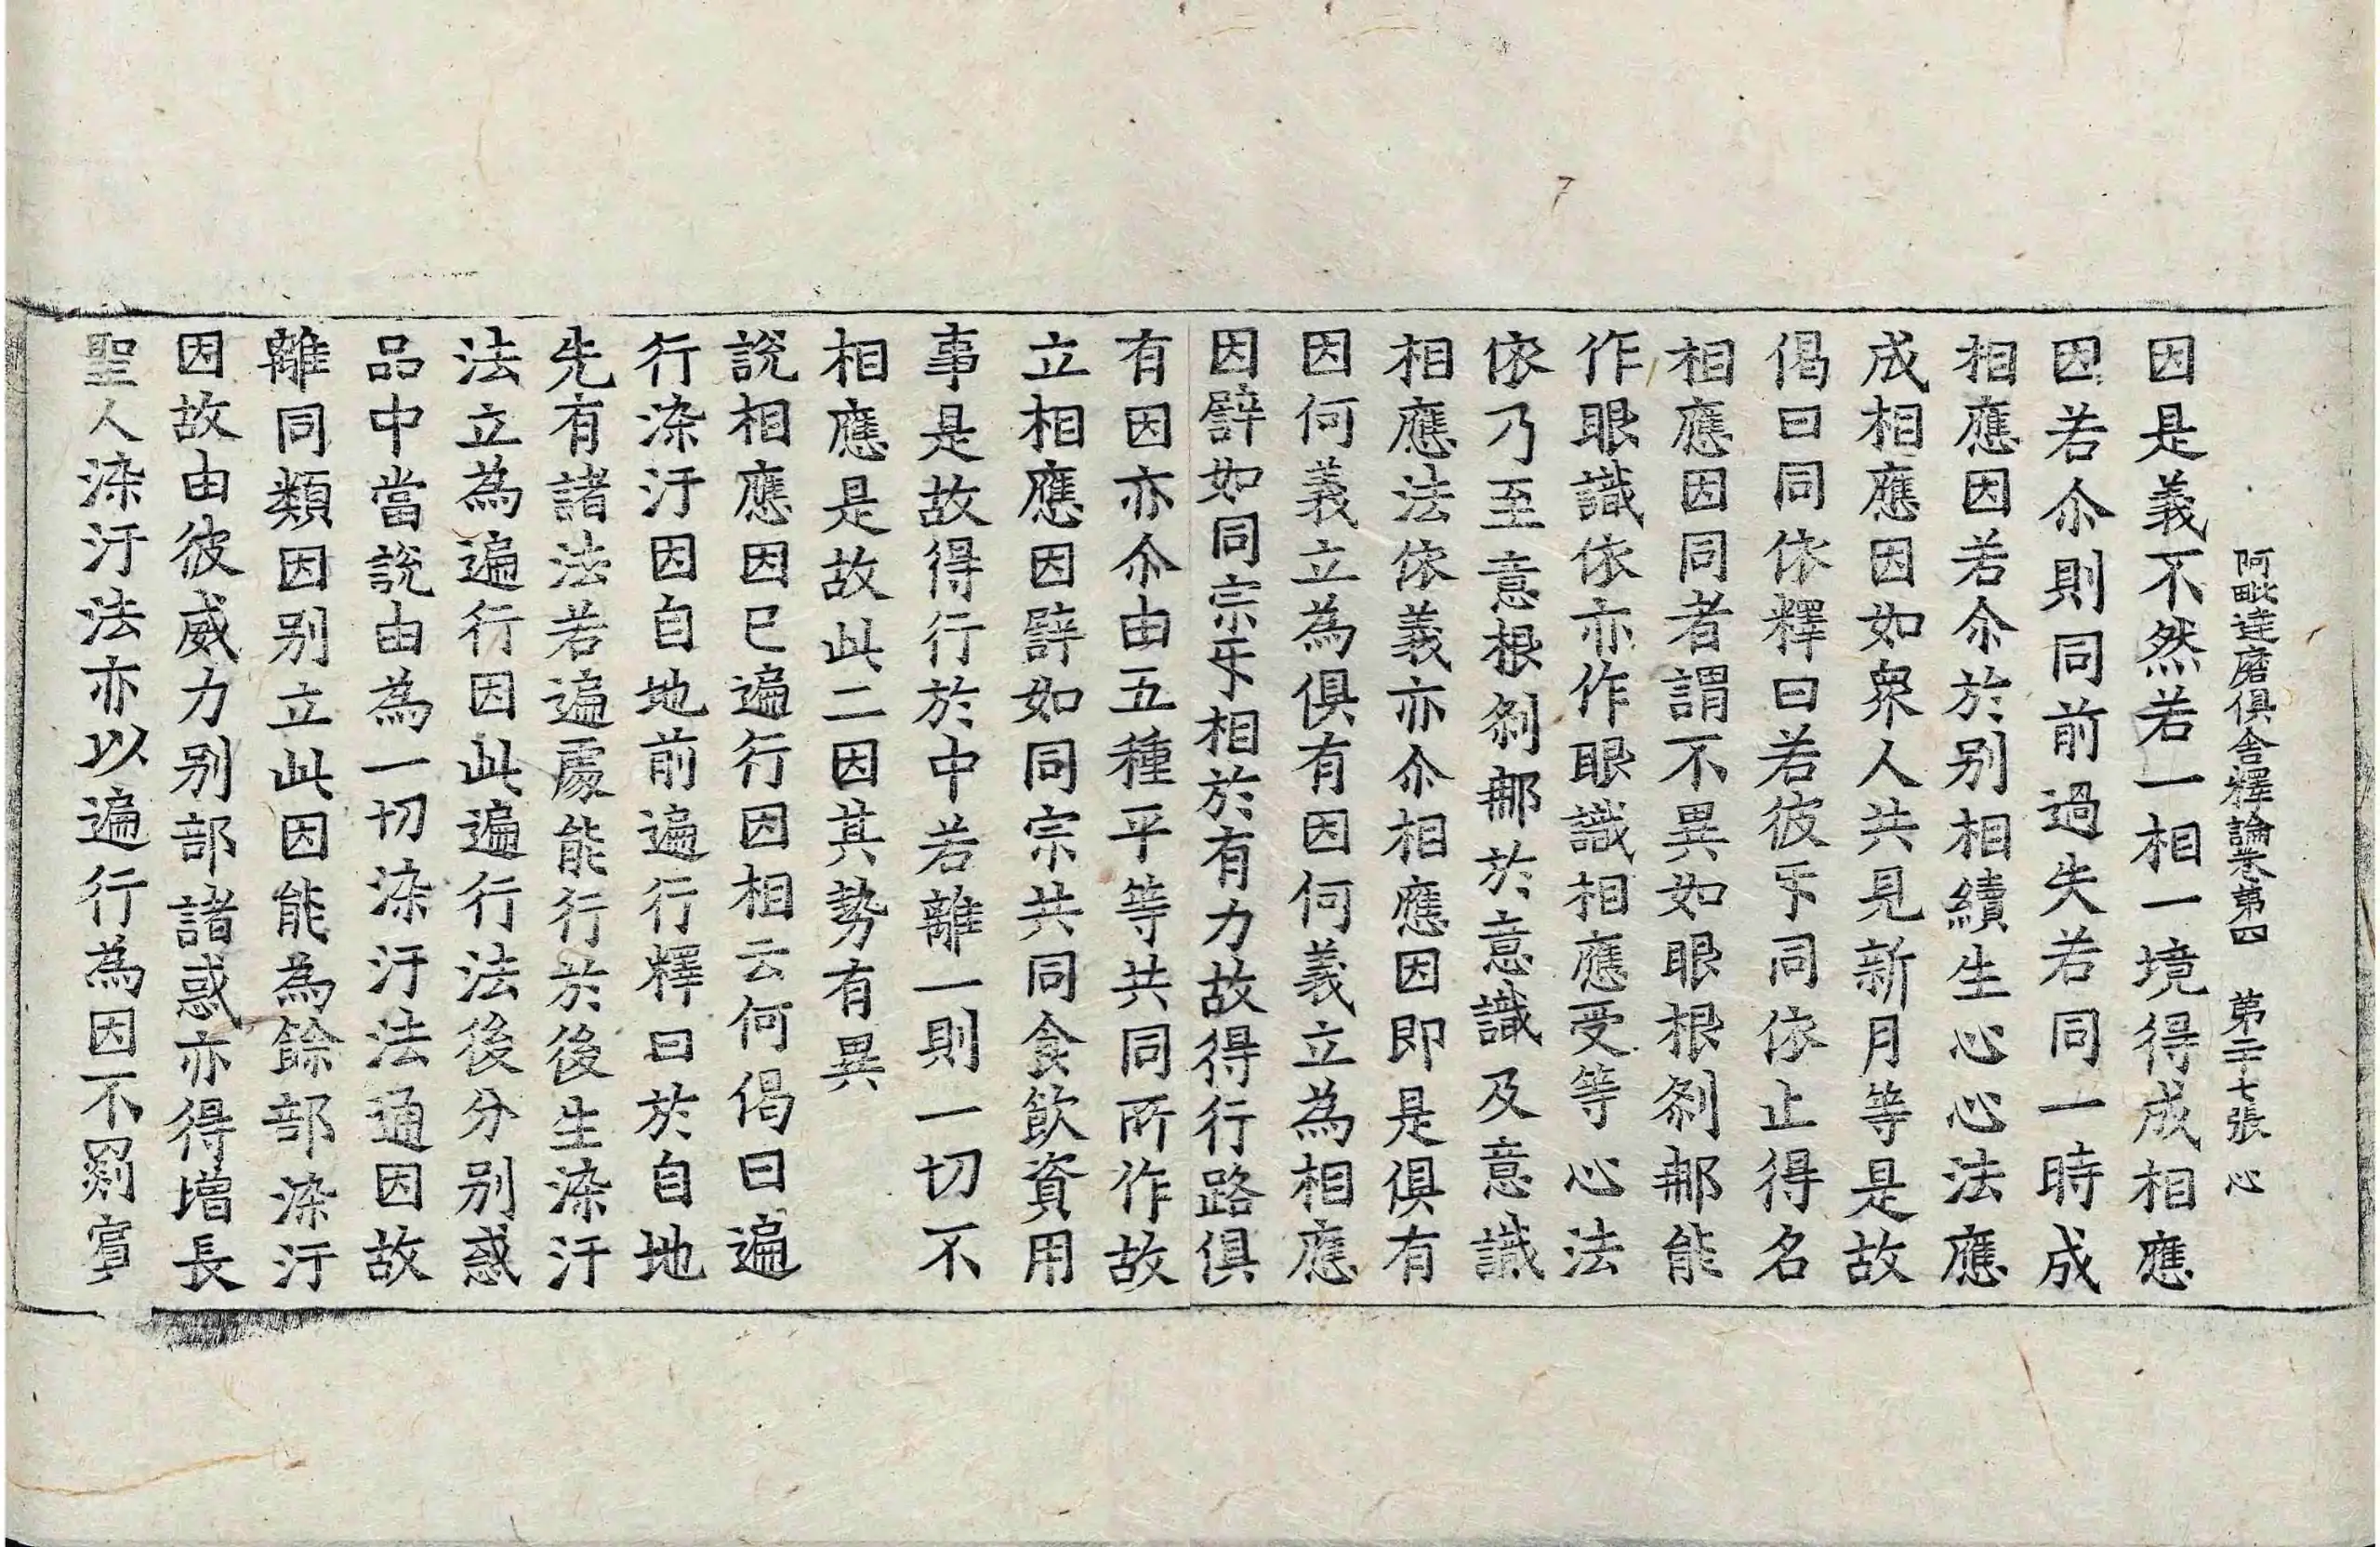 阿毗達磨俱舍釋論卷第四　第二十七張　心
因是義不然若一相一境得成相應
因若尒則同前過失若同一時成
相應因若尒於别相續生心心法應
成相應因如衆人共見新月等是故
偈曰同依釋曰若彼㸦同依止得名
相應因同者謂不異如眼根剎那能
作眼識依亦作眼識相應受等心法
依乃至意根剎那於意識及意識
相應法依義亦尒相應因即是俱有
因何義立為俱有因何義立為相應
因譬如同宗㸦相於有力故得行路俱
有因亦尒由五種平等共同所作故
立相應因譬如同宗共同食飲資用
事是故得行於中若離一則一切不
相應是故此二因其勢有異
說相應因已遍行因相云何偈曰遍
行染汙因自地前遍行釋曰於自地
先有諸法若遍處能行於後生染汙
法立為遍行因此遍行法後分别惑
品中當說由為一切染汙法通因故
離同類因别立此因能為餘部染汙
因故由彼威力别部諸惑亦得增長
聖人染汙法亦以遍行為因不罽賓